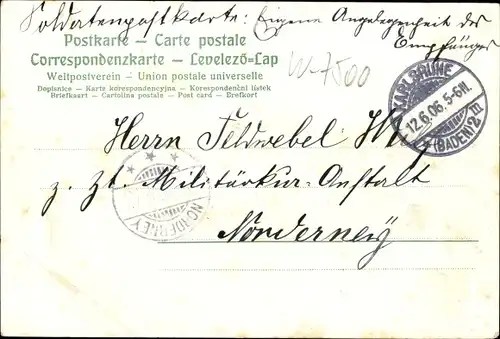 Soldatenpostkarte: Eigene Angelegenheit des
Empfängers
Postkarte – Carte postale
Correspondenzkarte – Levelező-Lap
Weltpostverein – Union postale universelle
Dopisnice – Karta korespondencyjna – Korespondenční lístek
Briefkaart – Cartolina postale – Post card – Brefkort
W-7500
KARLSRUHE
12.6.06. 5-6N.
(BADEN) 2 m
Herrn Feldwebel
z. Zt. Militärkur-Anstalt
NORDERNEY
Norderney